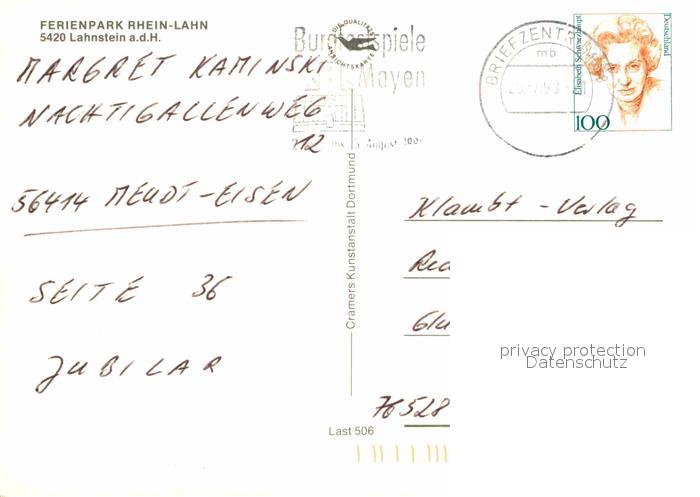 FERIENPARK RHEIN-LAHN
5420 Lahnstein a.d.H.
MARGRET KAMINSKI
NACHTIGALLENWEG
12
56414 MEUDT-EISEN
SEITE 36
JUBILAR
Burgfestspiele
Mayen
August
DIE QUALITÄTS
ANSICHTSKARTE
BRIEFZENTRUM
mb
Elisabeth Schwarzhaupt
Deutschland
100
Cramers Kunstanstalt Dortmund
Klambt-Verlag
Glu
76528
privacy protection
Datenschutz
Last 506